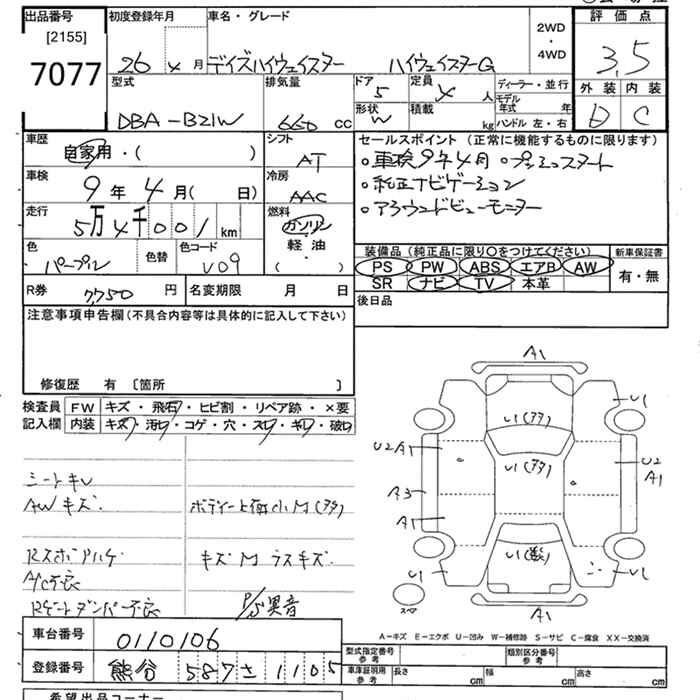 出品番号
[2155]
7077
初度登録年月
26 4 月
車名・グレード
デイズハイウェイスター ハイウェイスターG
2WD
・
4WD
評価点
3.5
外装 内装
D C
型式
DBA-B21W
排気量
660 CC
ドア
5
定員
4 人
形状
W
積載
kg
ディーラー・並行
モデル年式 年
ハンドル 左・右
車歴
自家用・( )
シフト
AT
車検
9年 4月( 日)
冷房
AAC
走行
5万4千001 km
燃料
ガソリン
軽・油
( )
色
パープル
色替
色コード
V09
R券 7,750 円
名変期限 月 日
セールスポイント(正常に機能するものに限ります)
○車検9年4月 ○プッシュスタート
○純正ナビゲーション
○アラウンドビューモニター
装備品(純正品に限り○をつけてください)
PS PW ABS エアB AW
SR ナビ TV 本革
新車保証書
有・無
後日品
注意事項申告欄(不具合内容等は具体的に記入して下さい)
修復歴 有 〔箇所 〕
検査員
記入欄
FW キズ・飛石・ヒビ割・リペア跡・×要
内装 キズ・汚れ・コゲ・穴・スレ・キレ・破れ
シートキレ
AWキズ
ボディー上面小M(多タ)
Rスポアハゲ
キズM ラスキズ
A/C不良
P/S異音
Rゲートダンパー不良
A1
U1(多タ)
U1
U2 A1
U1(多タ)
U2
A1
A3
A1
U1
スペア
A1
A-キズ E-エクボ U-凹み W-補修跡 S-サビ C-腐食 XX-交換済
車台番号 0110106
登録番号 熊谷 587 1105
型式指定番号
参考
類別区分番号
参考
車庫証明用
参考
長さ cm
幅 cm
高さ cm
希望出品コーナー